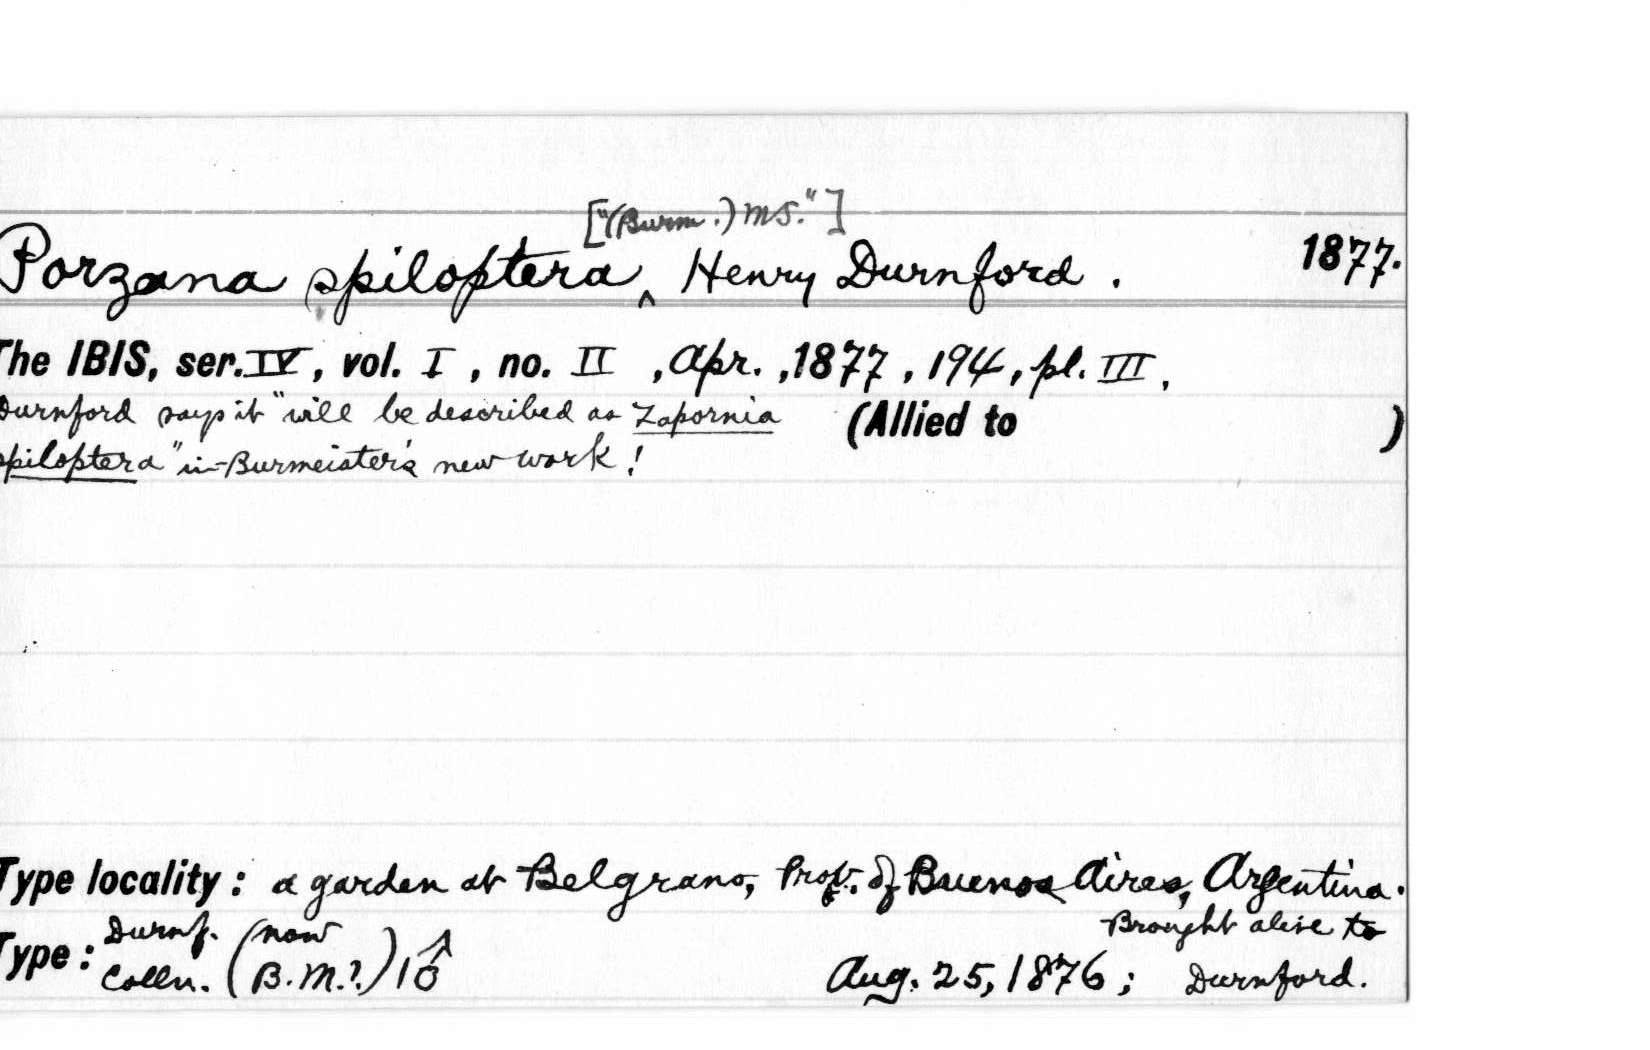 ["(Burm.) MS."]
Porzana spiloptera ‸ Henry Durnford. 1877.
The IBIS, ser. IV, vol. I, no. II, Apr., 1877, 194, pl. III.
Durnford says it "will be described as Zapornia (Allied to )
spiloptera" in Burmeister's new work!
Type locality: a garden at Belgrano, Prov. of Buenos Aires, Argentina.
Brought alive to
Type: Durnf. Colln. (now B.M.?) 1♂ Aug. 25, 1876; Durnford.